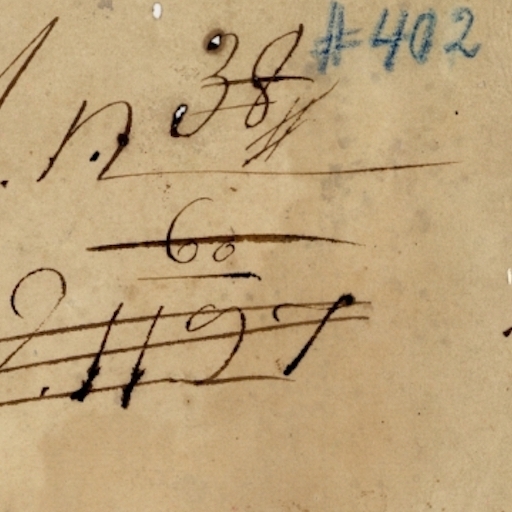 #402
n 38
60
2.1197